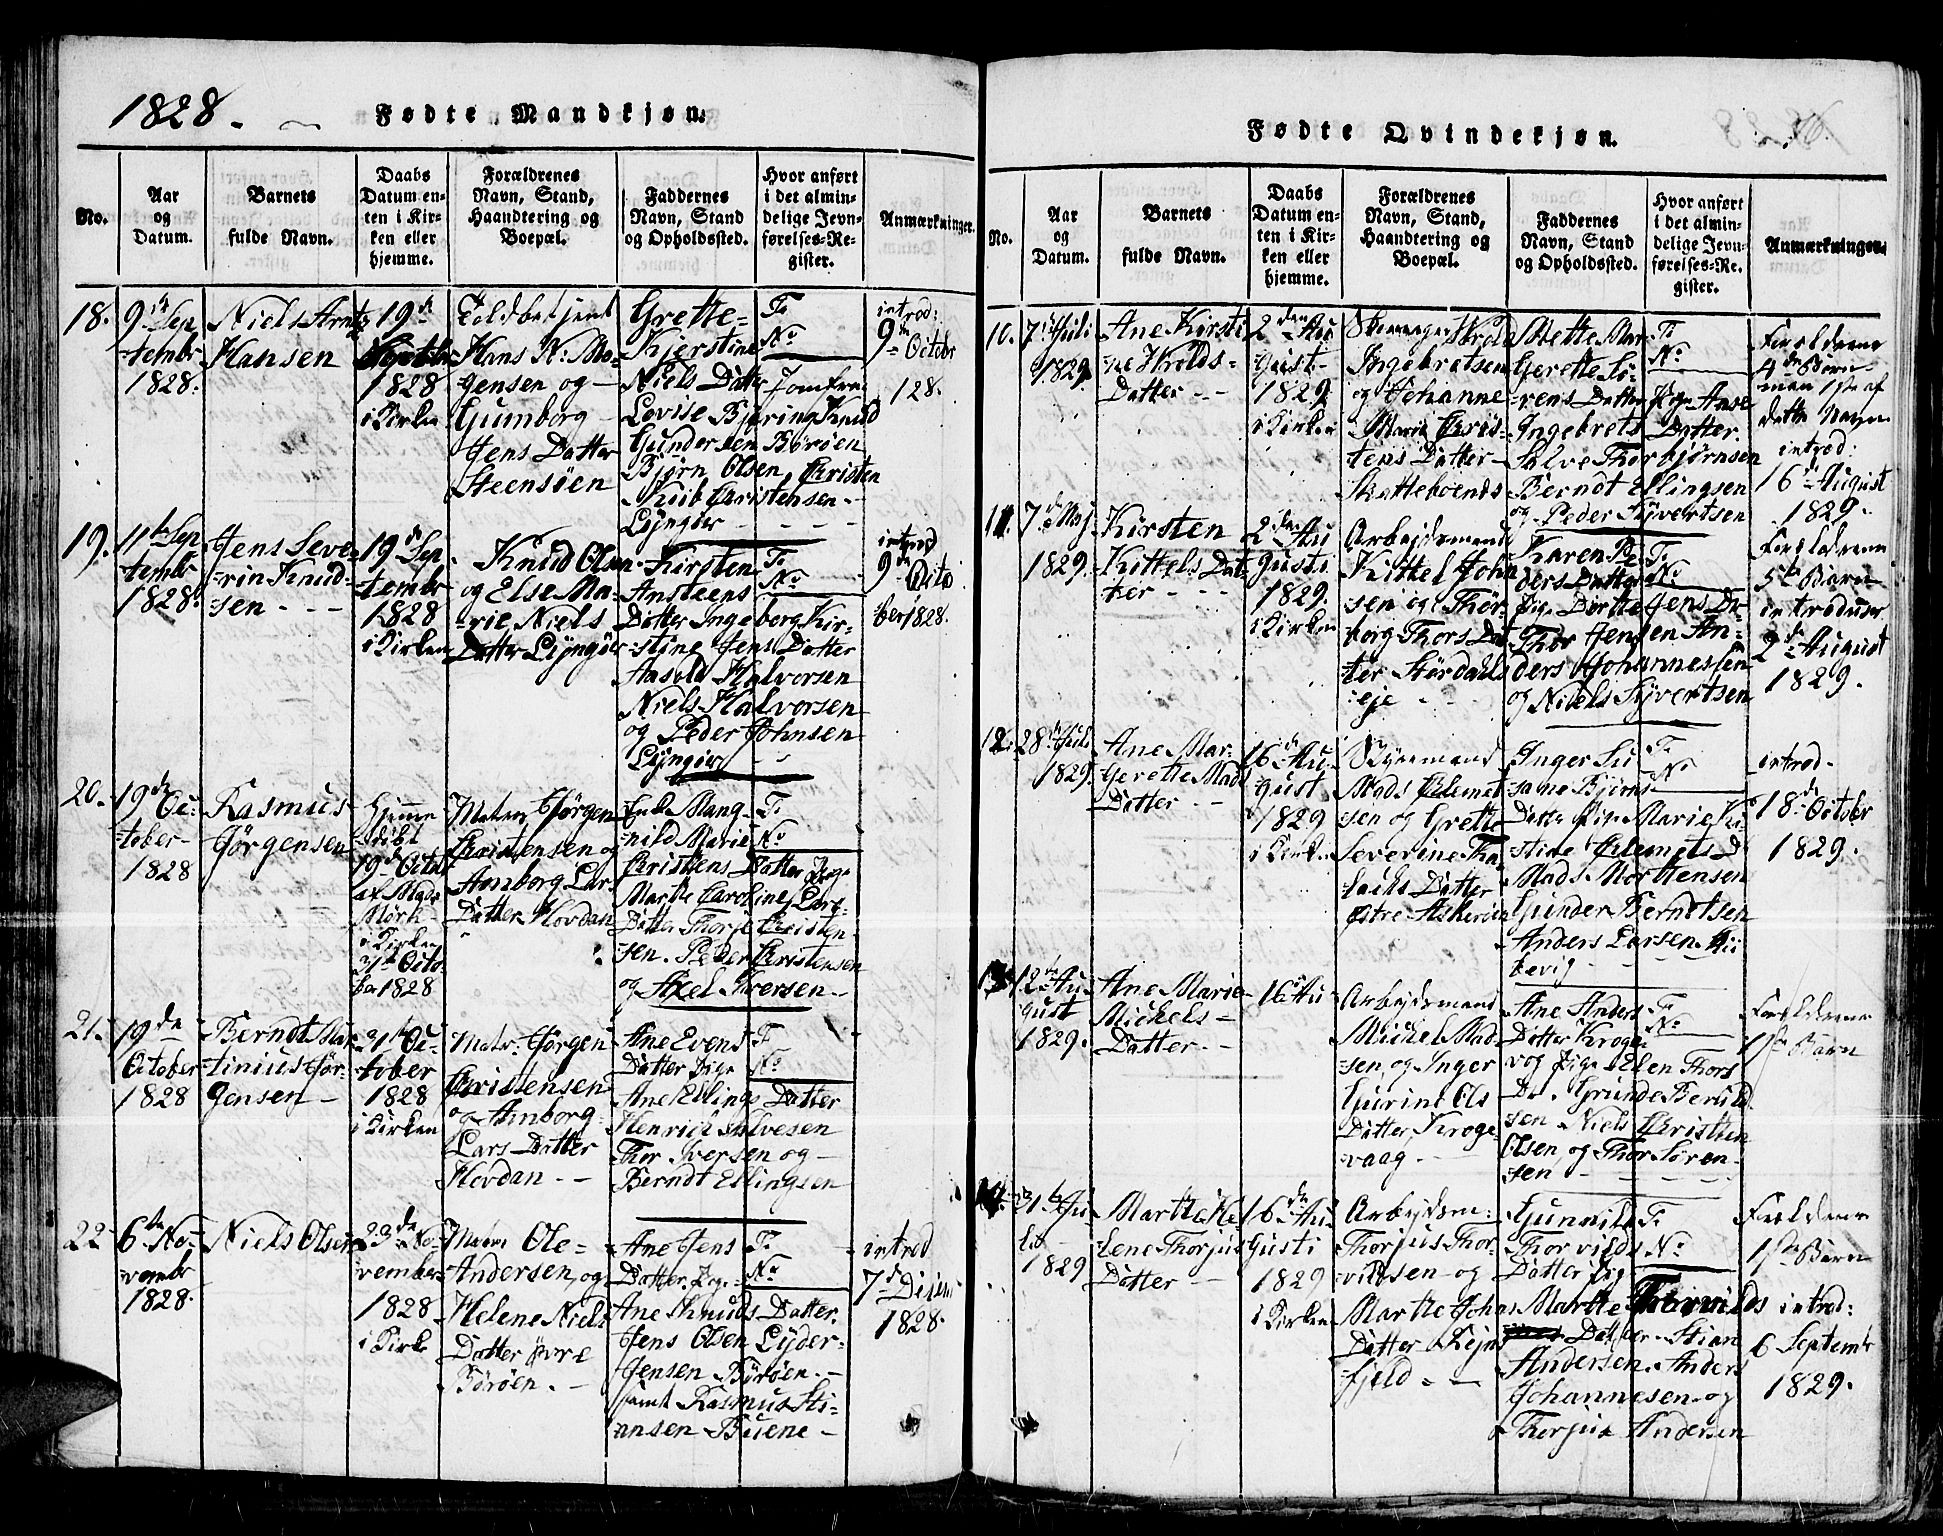 1828.
Fødte Mandkjøn.
No.
Aar
og
Datum.
Barnets
fulde Navn.
Daabs
Datum en-
ten i Kir-
ken eller
hjemme.
Forældrenes
Navn, Stand,
Haandtering og
Boepæl.
Faddernes
Navn, Stand
og Opholdssted.
Hvor anført
i det almin-
delige Jevn-
førelses-Re-
gister.
Anmærkninger.
18.
9de Sep
-tembr
1828.
Niels Arntz
Hansen
19de
1828
i Kirken
Toldbetjent
Hans N: Mo-
gensen og
Gumborg
Jens Datter
Steensöen
Grette-
Kjerstine
Niels Datter Jomfru
Lovise Bjering Knud
Gundersen Böröen
Björn Olsen, Christen
Kiib Christensen
Lÿngöer
F:
No
introd:
9de Octobr
128.
19.
11te Sep
tembr
1828.
Jens Seve-
-rin Knud-
sen
19de Sep
tembr
1828
i Kirken
Knud Olsen
og Else Ma-
-rie Niels
Datter Lÿngöer
Kirsten
Ansteens
Datter Ingeborg Kir-
-stine Jens Datter
Aasold Halvorsen
Niels Halvorsen
og Peder Johnsen
Lÿngöer
F:
No
introd
9de Octo
ber 1828.
20.
19de Oc-
-tober
1828
Rasmus
Jörgensen
Hjemme
döbt
19de Octob
af Mads
Mörk
i Kirken
31te Octo
ber 1828
Matros Jörgen
Christensen og
Amborg Lars
Datter Hovdan
Enke Mang-
nild Marie
Christens Datter Pige
Marthe Caroline Lars-
Datter Thorje Christen-
sen. Peder Christensen
og Axel Iversen
F:
No
21.
19de
October
1828
Berndt Mar-
tinius Jör-
gensen
31te Oc-
tober
1828
i Kirken
Matr: Jörgen
Christensen
og Amborg
Lars Datter
Hovdan
Ane Evens
Datter Pige
Ane Ellings Datter
Henrich Salvesen
Thor Iversen og
Berndt Ellingsen
F:
No
22
6te No-
vembr
1828.
Niels Olsen
23de No-
vember
1828
i Kirke
Matros Ole
Andersen og
Helene Niels
Datter övre
Böröen.
Ane Jens
Datter, Pige
Ane Knuds Datter.
Jens Olsen Lyder-
Jensen Böröen.
samt Rasmus Sti-
ansen Buene
F:
No
introd
7de Decem
1828.
Fødte Qvindekjøn.
76.
No.
Aar
og
Datum.
Barnets
fulde Navn.
Daabs
Datum en-
ten i Kir-
ken eller
hjemme.
Forældrenes
Navn, Stand,
Haandtering og
Boepæl.
Faddernes
Navn, Stand
og Opholdssted.
Hvor anført
i det almin-
delige Jevn-
førelses-Re-
gister.
Anmærkninger.
10.
7de Juli
1829
Ane Kirsti
ne Wrolds-
Datter
2den Au
gust
1829
i Kirken
Wrold
Ingebretsen
og Johanne
Marie Chris-
tens Datter
Skatteboends
Mette Mar
Gerette Sö-
rens Datter Pige Anne
Ingebrets Datter.
Salve Thorbjörnsen
Berndt Ellingsen
og Peder Sÿvertsen
F:
No
Forældrene
4de Börn
men 1ste af
dette Navn
introd:
16de August
1829.
11.
7de Maj
1829.
Kirsten
Kittels Dat
ter
2den Au
gusti
1829
i Kirken
Arbejdsmand
Kittel John
sen og Thör-
borg Thors Dat
ter Stördahls
eje
Karen Pe
ders Datter
Pige Dorthe Jens Da-
Thor Jensen An-
ders Johannessen
og Niels Sÿvertsen
F:
No
Forældrene
5te Barn
introducer
2de August
1829.
12.
28de Juli
1829.
Ane Mar-
Gerette Mads
Datter
16de Au
gust
1829
i Kirken
Mads Clemet
sen og Grette
Severine Tha
Datter
östre Askeröen
Inger Su
sane Björns
Datter Pige Marie Ki
stine Clemets D
Mads Morttensen
Gunder Berndtsen
Anders Larsen
bevig
F:
No
introd.
18de Octobr
1829.
13.
12te Au
gust
1829.
Ane Marie
Michels
Datter
16de Au
Arbejdsmand
Michel Mad-
sen, og Inger
Gurine Ols
Datter, Kroge-
vaag
Ane Anders
Datter Kroge-
vog Pige Elen Thors
Da. Grunde Beruld
sen Niels Christien
Olsen og Thor Sören-
sen
F:
No
Forældrene
1ste Barn
14.
31te Ju
li
1829
Marthe He-
lene Thorjus
Datter
16de Au
gusti
1829
i Kirken
Arbejdsm:
Thorjus Thor-
vildsen og
Marthe Johns
Datter Rejns
fjeld
Gunnild
Thorvilds
Datter Pig
Marthe Thorvilds
Datter Stian
Andersen. Anders
Johannesen og
Thorjus Andersen
F:
No
Forældrene
1ste Barn
introd:
6 Septembr
1829.